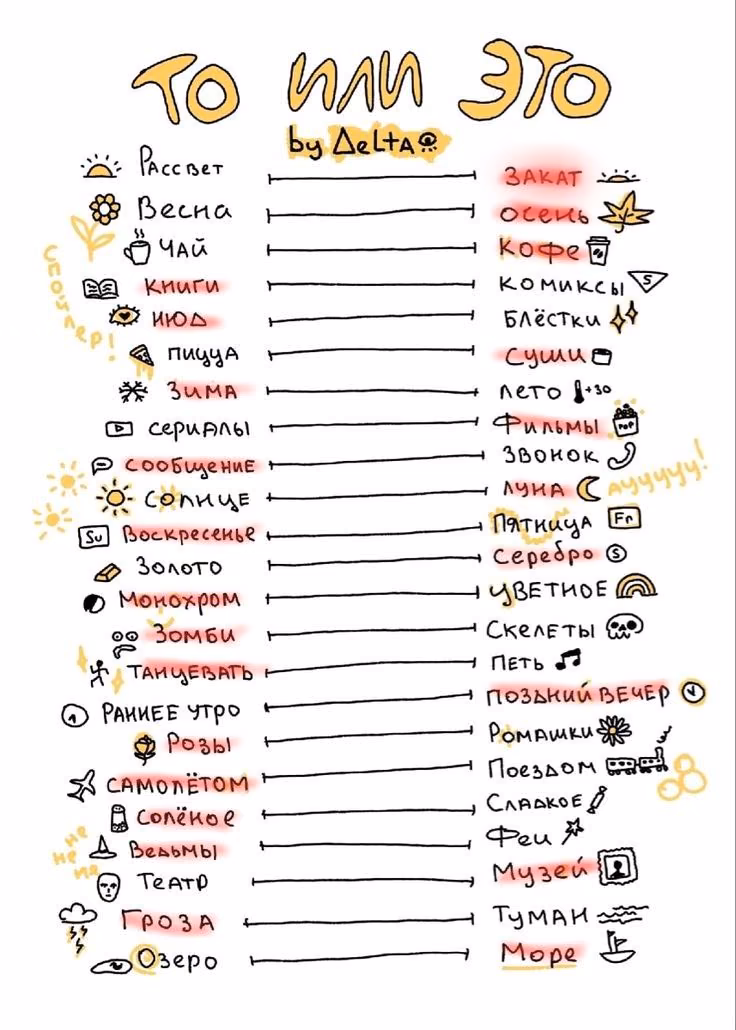 ТО ИЛИ ЭТО
by Delta
Рассвет ЗАКАТ
Весна осень
ЧАЙ Кофе
Книги комиксы S
Спойлер!
июд Блёстки
пицца Суши
Зима лето +30
сериалы Фильмы POP
сообщение Звонок
Солнце луна Ауууууу!
Su Воскресенье Пятница Fr
Золото Серебро S
Монохром цветное
Зомби Скелеты
Танцевать петь
Раннее утро поздний вечер
Розы Ромашки
самолётом Поездом
Солёное Сладкое
не не не
Ведьмы Феи
Театр Музей
Гроза Туман
Озеро Море